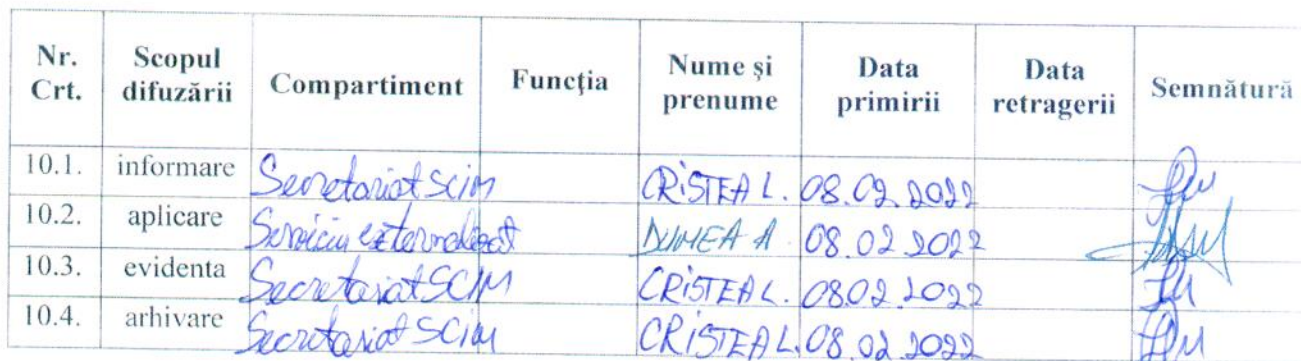 Nr. Crt. Scopul difuzării Compartiment Funcția Nume și prenume Data primirii Data retragerii Semnătură
10.1. informare Secretariat SCIM CRISTEA L. 08.02.2022
10.2. aplicare Serviciu externalizat DUMEA A. 08.02 2022
10.3. evidenta Secretariat SCIM CRISTEA L. 08.02 2022
10.4. arhivare Secretariat SCIM CRISTEA L. 08.02.2022